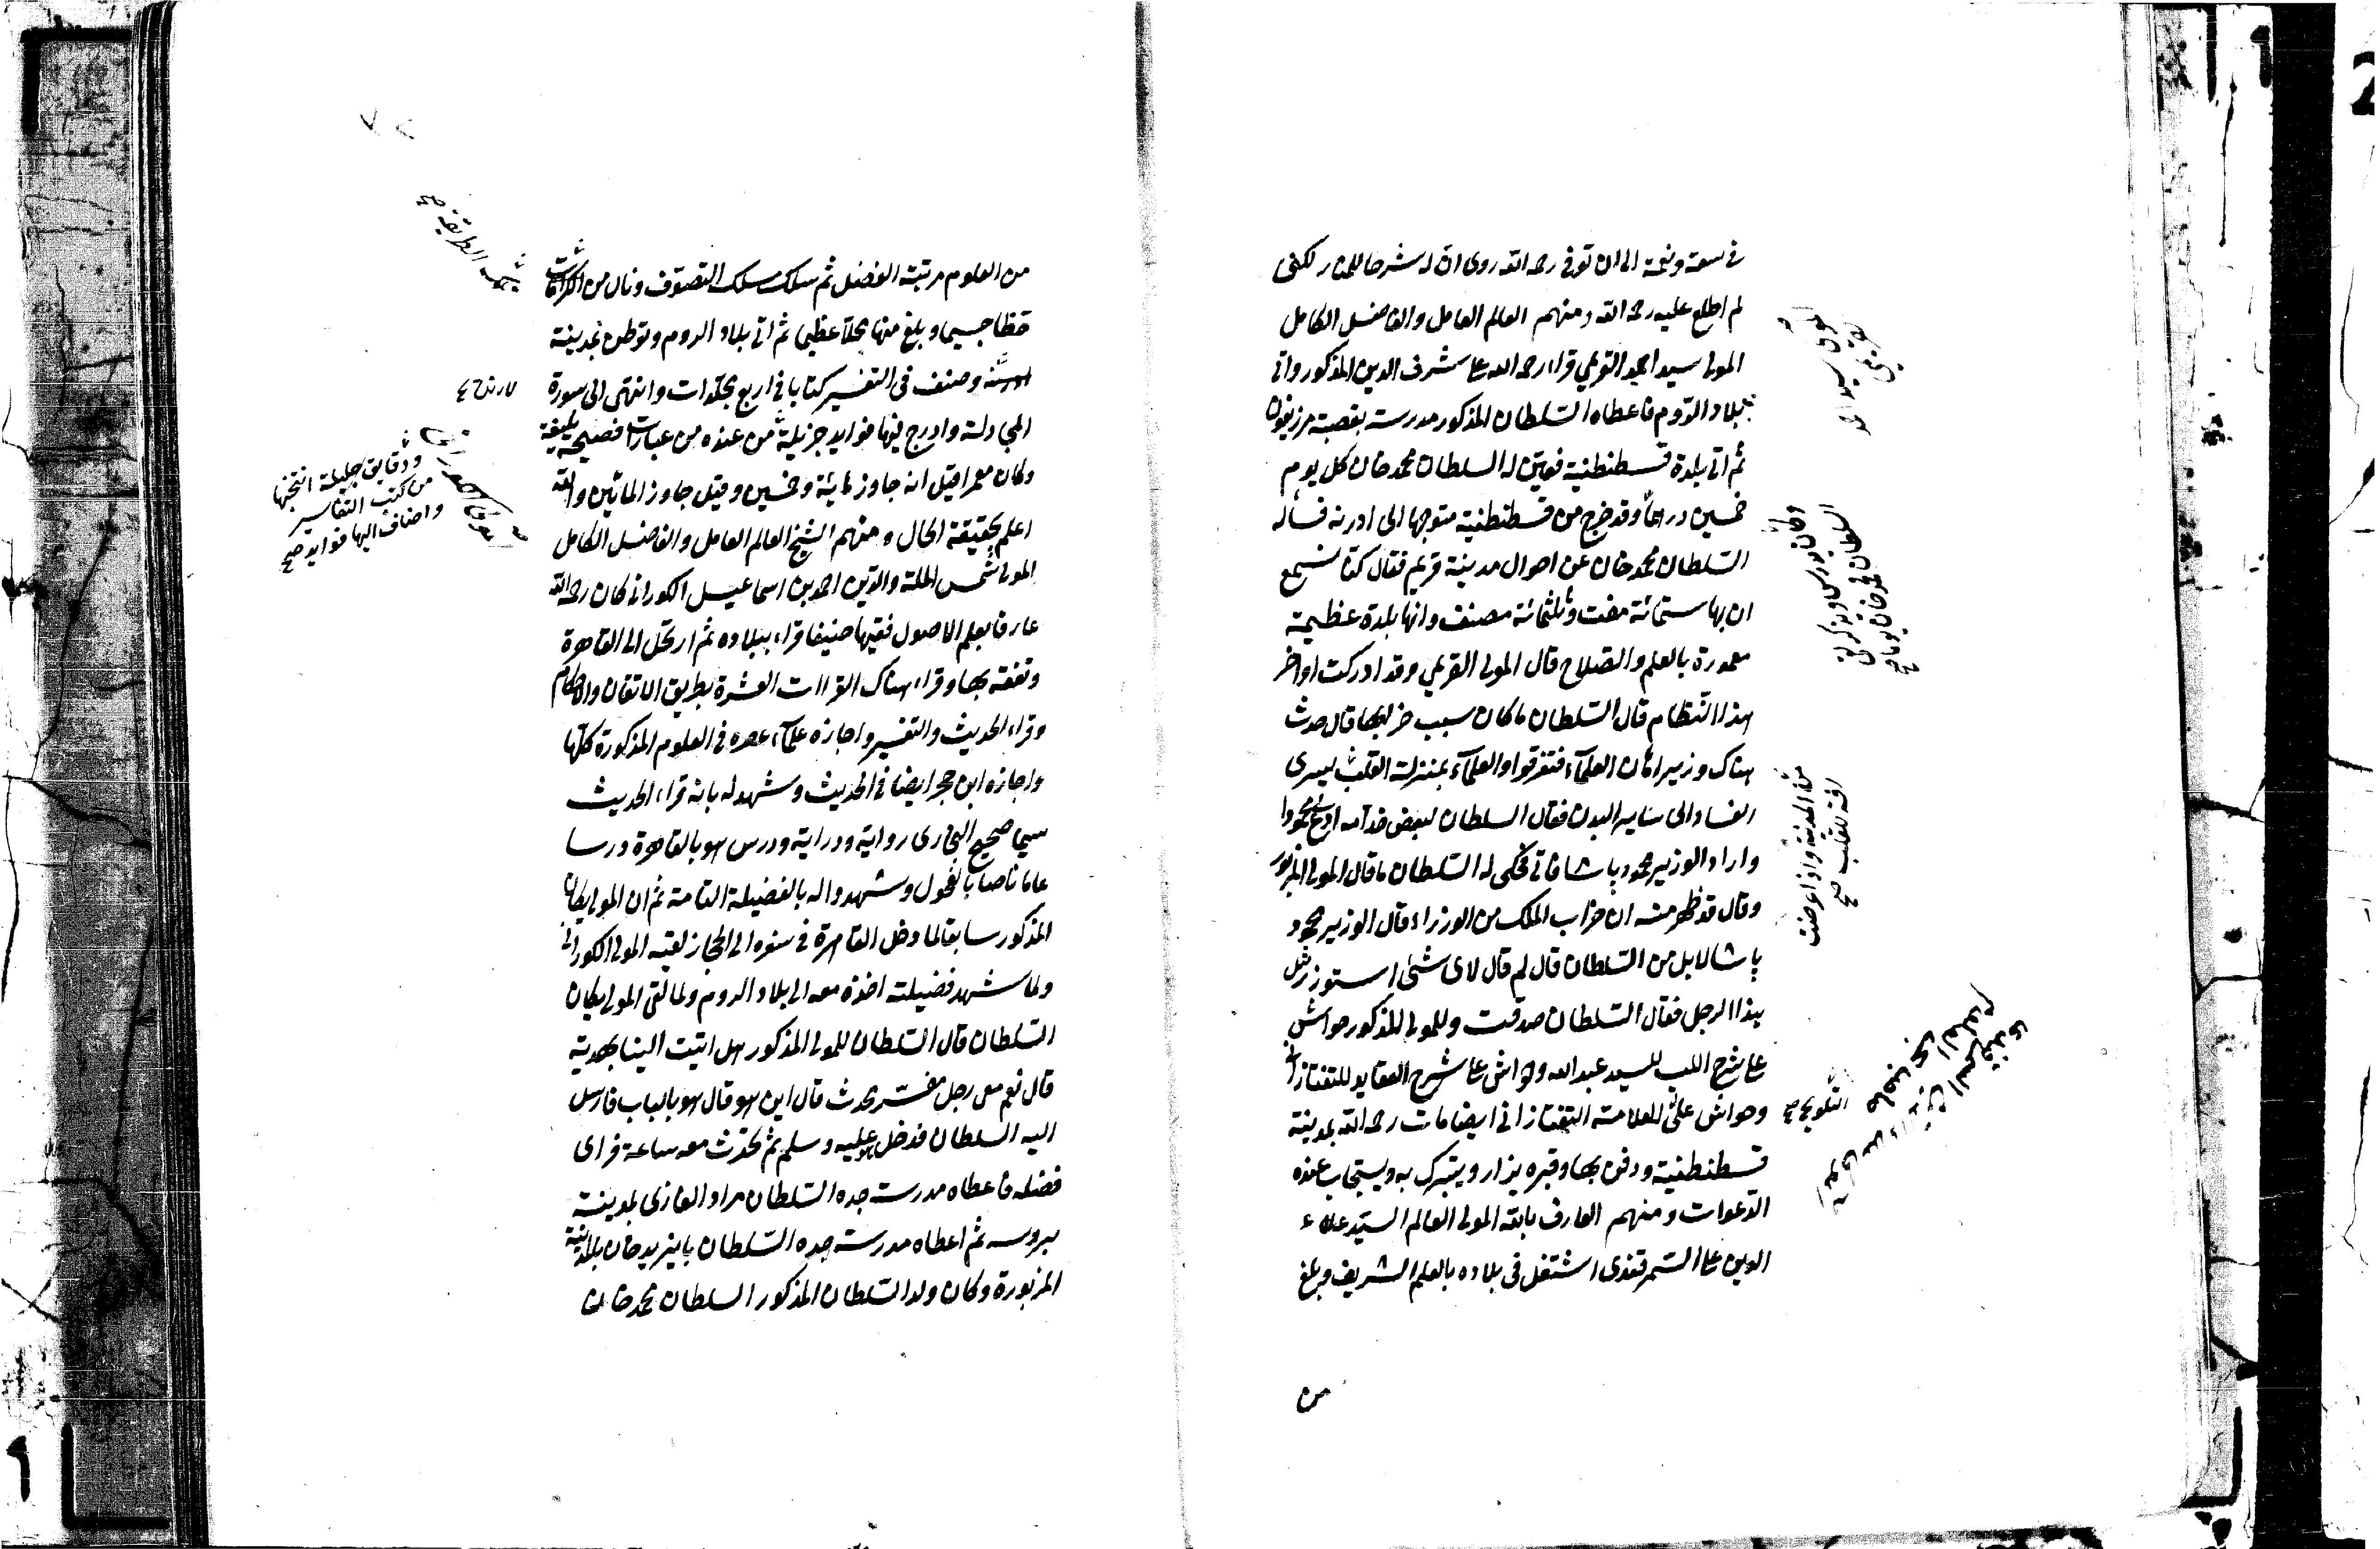 في سعة ونعمة الى ان توفى رحمه الله روى ان له شرحا للمنار لكنى
لم اطلع عليه رحمه الله ومنهم العالم العامل والفاضل الكامل
المولى سيد احمد القريمي قراء رحمه الله على شرف الدين المذكور واتى
ببلاد الروم فاعطاه السلطان المذكور مدرسة بقصبة مرزيفون
ثم اتى بلدة قسطنطنية فعين له السلطان محمد خان كل يوم
خمسين درهما وقد خرج من قسطنطنية متوجها الى ادرنه فسأله
السلطان محمد خان عن احوال مدينة قريم فقال كنا نسمع
ان بها ستمائة مفت وثلثمائة مصنف وانها بلدة عظيمة
معمورة بالعلم والصلاح قال المولى القريمي وقد ادركت اواخر
هذا النظام قال السلطان ما كان سبب خرابها قال حدث
هناك وزير اهان العلماء فتفرقوا والعلماء بمنزلة القلب يسرى
الفساد الى سائر البدن فقال السلطان لبعض خدامه ادع محمودا
واراد الوزير محمود باشا فاتى فحكى له السلطان ما قال المولى المزبور
وقال قد ظهر منه ان خراب الملك من الوزراء قال الوزير محمود
باشا لا بل من السلطان قال لم قال لاى شئ استوزر مثل
هذا الرجل فقال السلطان صدقت وللمولى المذكور حواش
على شرح اللب للسيد عبدالله وحواش على شرح العقايد للتفتازانى
وحواش على للعلامة التفتازانى ايضا مات رحمه الله بمدينة
قسطنطنية ودفن بها وقبره يزار ويتبرك به ويستجاب عنده
الدعوات ومنهم العارف بالله المولى العالم السيد علاء
الدين على السمرقندى اشتغل في بلاده بالعلم الشريف وبلغ
من
المولى سيد احمد
القريمى
وكان يدرس ويذكر
السلطان محمد خان يوما صح
من المدينة واذا عرضت
افة للقلب صح
التلويح صح
السمرقندى
من العلوم مرتبة الفضل ثم سلك مسلك التصوف ونال من الكرامات
حظا جسيما وبلغ منها محلا عظيما ثم اتى بلاد الروم وتوطن بمدينة
وصنف في التفسير كتابا في اربع مجلدات وانتهى الى سورة
المجادلة وادرج فيها فوايد جزيلة من عنده من عبارات فصيحة بليغة
وكان معمرا قيل انه جاوز مائة وخمسين وقيل جاوز المائتين والله
اعلم بحقيقة الحال ومنهم الشيخ العالم العامل والفاضل الكامل
المولى شمس الملة والدين احمد بن اسماعيل الكورانى كان رحمه الله
عارفا بعلم الاصول فقيها حنيفا قراء ببلاده ثم ارتحل الى القاهرة
وتفقه بها وقراء هناك القراات العشرة بطريق الاتقان والاحكام
وقراء الحديث والتفسير واجازه علماء عصره في العلوم المذكورة كلها
واجازه ابن حجر ايضا في الحديث وشهد له بانه قراء الحديث
سيما صحيح البخارى رواية ودراية ودرس هو بالقاهرة درسا
عاما خاصا بالفحول وشهدوا له بالفضيلة التامة ثم ان المولى يكان
المذكور سابقا لما دخل القاهرة في سفره الى الحجاز لقيه المولى الكورانى
ولما شهد فضيلته اخذه معه الى بلاد الروم ولما لقى المولى يكان
السلطان قال السلطان للمولى المذكور هل اتيت الينا بهدية
قال نعم معى رجل مفسر محدث قال اين هو قال هو بالباب فارسل
اليه السلطان فدخل هو عليه وسلم ثم تحدث معه ساعة فراى
فضله فاعطاه مدرسة جده السلطان مراد الغازى بمدينة
بروسه ثم اعطاه مدرسة جده السلطان بايزيد خان بالمدينة
المزبورة وكان ولد السلطان المذكور السلطان محمد خان
لارنده
ودقايق جليلة انتخبها
من كتب التفاسير
واضاف اليها فوايد صح